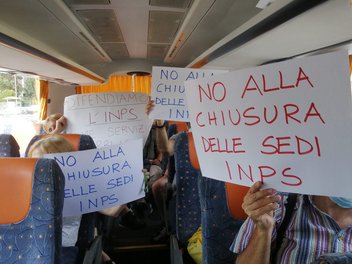 DIFENDIAMO
L'INPS
SERVIZI
NO ALLA
CHIUSURA
DELLE SEDI
INPS
NO ALLA
CHIUSURA
DELLE SEDI
INPS
NO ALLA
CHIUSURA
DELLE SEDI
INPS